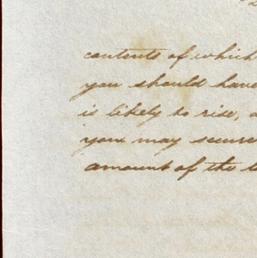 contents of which
you should have
is likely to rise,
you may secure
amount of the